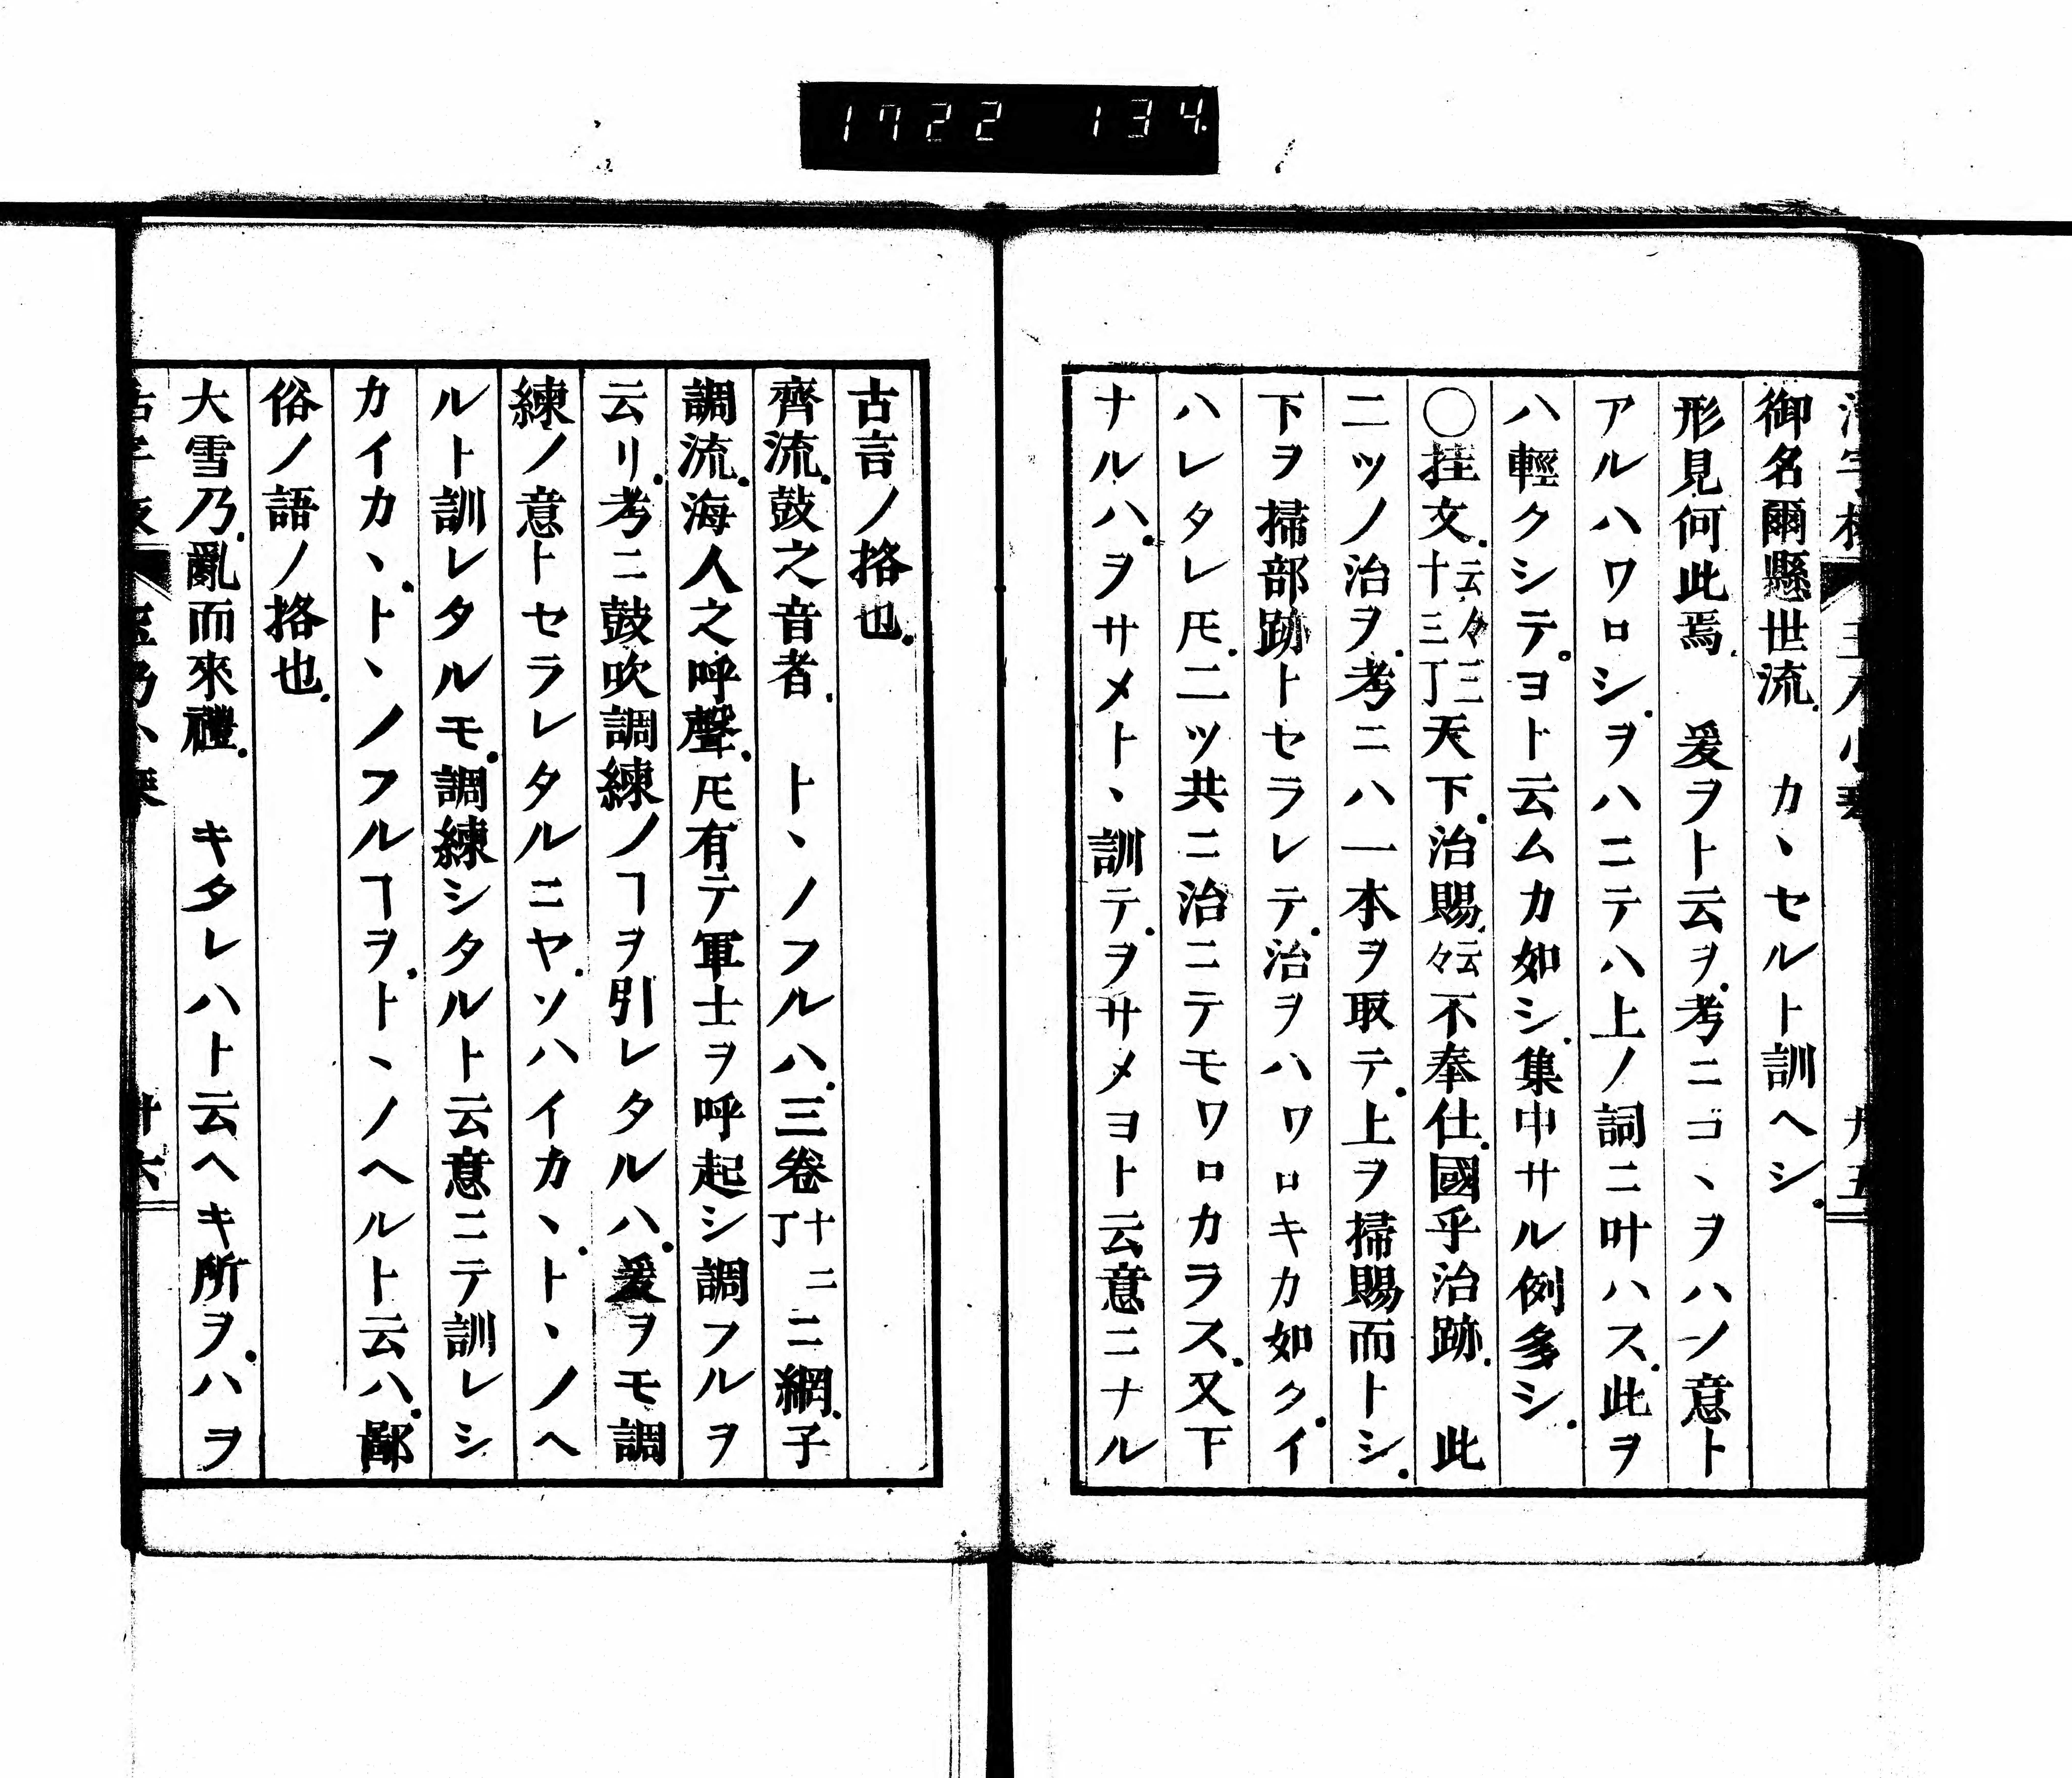 1722 134
御名爾懸世流　カヽセルト訓ヘシ
形見何此焉　爰ヲト云ヲ考ニコヽヲハノ意ト
アルハワロシヲハニテハ上ノ詞ニ叶ハス此ヲ
ハ輕クシテヨト云ムカ如シ集中サル例多シ
○挂文云々三十三丁天下治賜云々不奉仕國乎治跡　此
二ツノ治ヲ考ニハ一本ヲ取テ上ヲ掃賜而トシ
下ヲ掃部跡トセラレテ治ヲハワロキカ如クイ
ハレタレ𪜈二ツ共ニ治ニテモワロカラス又下
ナルハヲサメトヽ訓テヲサメヨト云意ニナル
古言ノ挌也
齊流鼓之音者　トヽノフルハ三卷十二丁ニ網子
調流海人之呼聲𪜈有テ軍士ヲ呼起シ調フルヲ
云リ考ニ鼓吹調練ノヿヲ引レタルハ爰ヲモ調
練ノ意トセラレタルニヤソハイカヽトヽノヘ
ルト訓レタルモ調練シタルト云意ニテ訓レシ
カイカヽトヽノフルヿヲトヽノヘルト云ハ鄙
俗ノ語ノ挌也
大雪乃亂而來禮　キタレハト云ヘキ所ヲハヲ